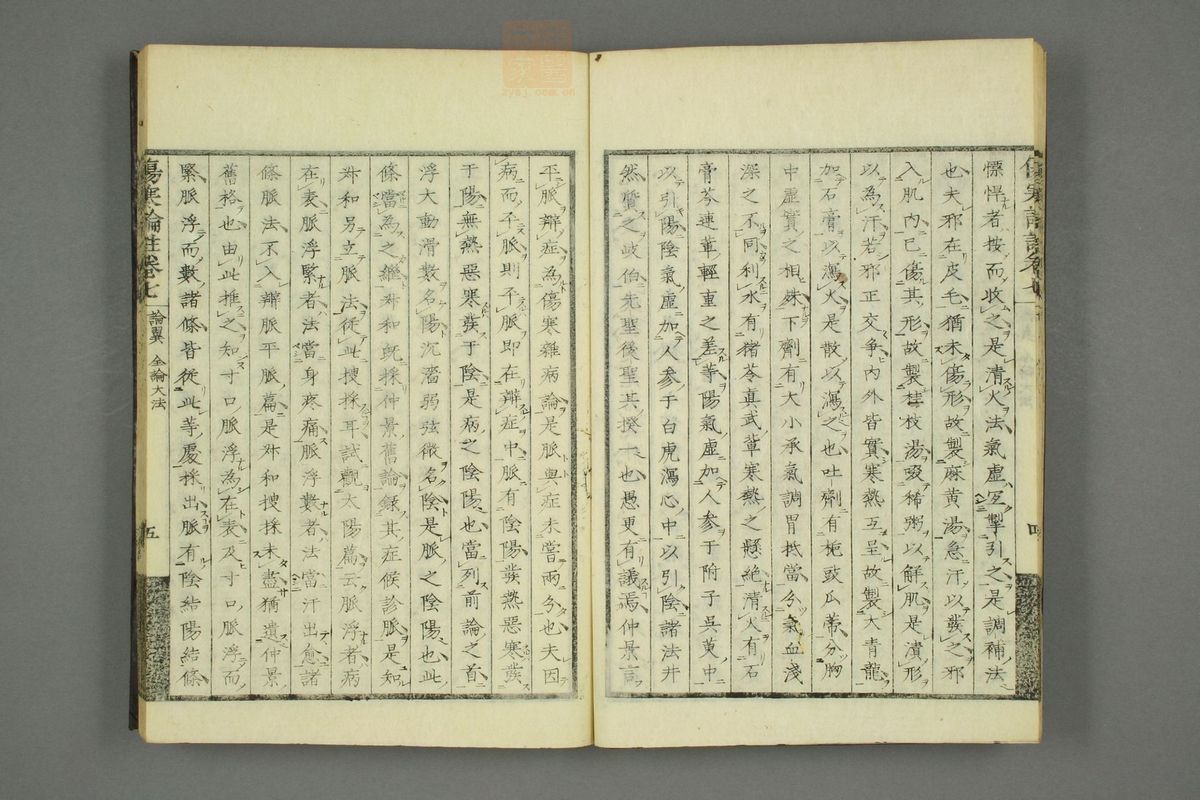 慓悍者按而收之是清火法氣虛宐掣引之是調補法
也夫邪在皮毛猶未傷形故製麻黃湯急汗以發之邪
入肌內已傷其形故製桂枝湯啜稀粥以解肌是潰形
以為汗若邪正交爭內外皆實寒熱互呈故製大青龍
加石膏以瀉火是散以瀉之也吐劑有梔豉瓜蒂分胸
中虛實之相殊下劑有大小承氣調胃抵當分氣血淺
深之不同利水有猪苓真武軰寒熱之懸絕清火有石
膏芩連軰輕重之差等陽氣虛加人參于附子吳萸中
以引陽陰氣虛加人參于白虎瀉心中以引陰諸法井
然質之岐伯先聖後聖其揆一也愚更有議焉仲景言
平脈辨症為傷寒雜病論是脈與症未嘗兩分也夫因
病而平脈則平脈即在辨症中脈有陰陽發熱惡寒發
于陽無熱惡寒發于陰是病之陰陽也當列前論之首
浮大動滑數名陽沉濇弱弦微名陰是脈之陰陽也此
條當為之繼叔和既採仲景舊論録其症候診脈是知
叔和另立脈法從此搜採耳試觀太陽篇云脈浮者病
在表脈浮緊者法當身疼痛脈浮數者法當汗出愈諸
條脈法不入辨脈平脈篇是叔和搜採未盡猶遺仲景
舊格也由此推之知寸口脈浮為在表及寸口脈浮而
緊脈浮而數諸條皆從此等處採出脈有陰結陽結條
傷寒論註卷七 論翼 全論大法 五